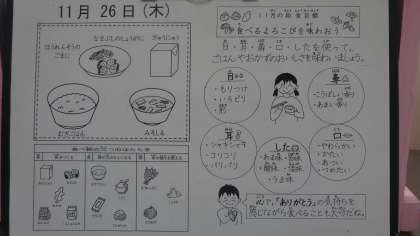 11月26日(木)
ほうれんそうの
ごまに
ぎゅうにゅう
みそしる
11月の給食目標
食べるよろこびを味わおう
目・耳・鼻・口・したを使って、
ごはんやおかずのおいしさを味わいましょう。
目
・もりつけ
・いろどり
・形
鼻
・こうばしい香り
・あまい香り
耳
・シャキシャキ
・コリコリ
・パリパリ
した
・あま味・塩味
・酸味・苦味
・うま味
口
・やわらかい
・かたい
・あつい
・つめたい
心で、「ありがとう」の気持ちを
感じながら食べることも大切だね。